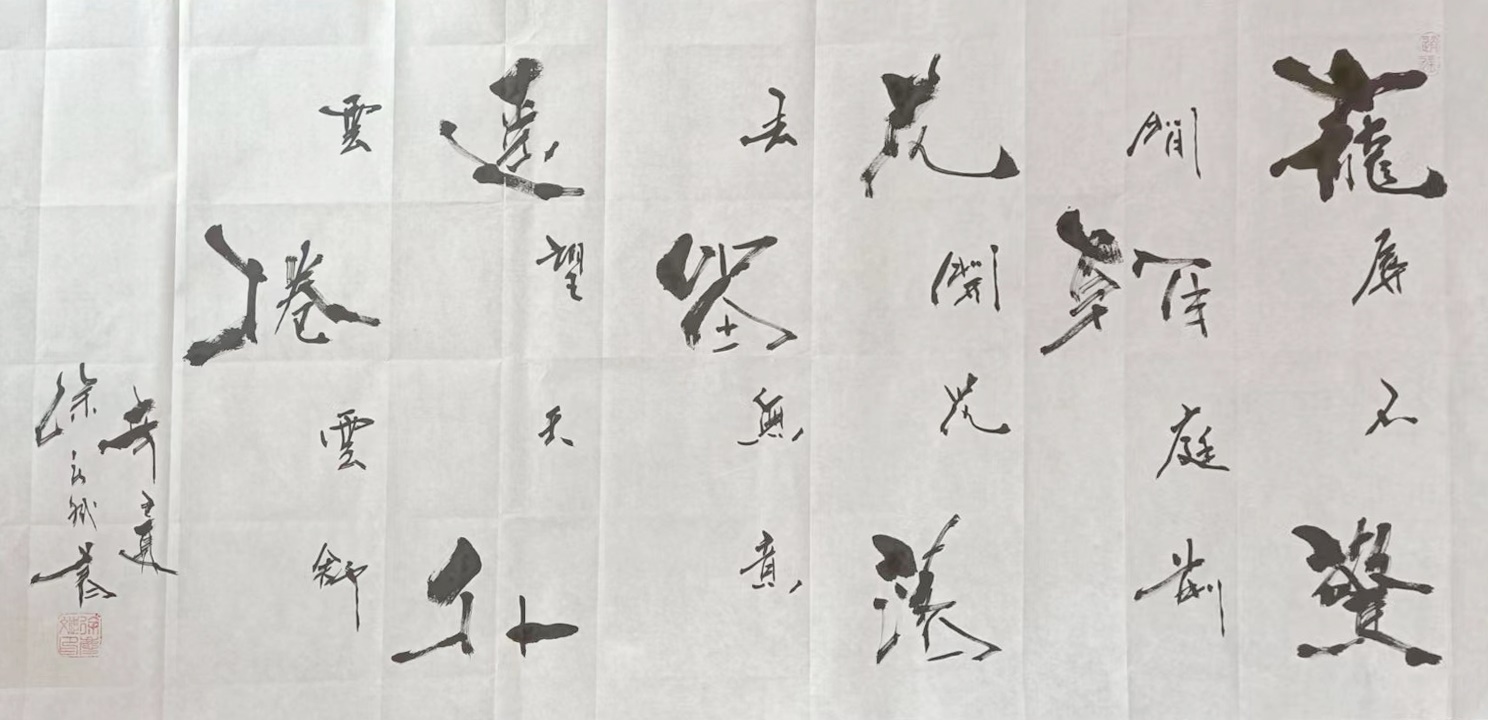 寵辱不驚
閒看庭前
花開花落
去留無意
遠望天外
雲捲雲舒
辛丑夏
徐 書